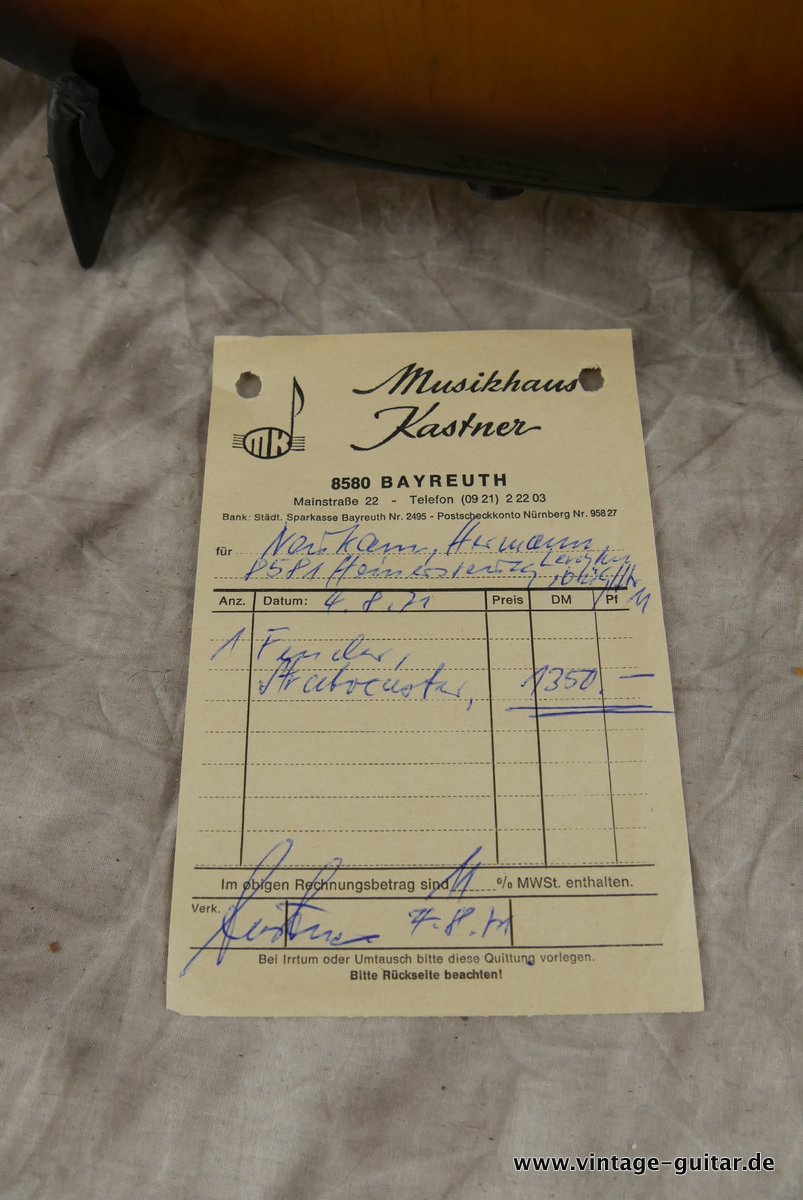 Musikhaus
Kastner
MK
8580 BAYREUTH
Mainstraße 22 - Telefon (09 21) 2 22 03
Bank: Städt. Sparkasse Bayreuth Nr. 2495 - Postscheckkonto Nürnberg Nr. 958 27
für Hermann,
8581
Anz. Datum: 4.8.71 Preis DM Pf
11
1 Fender,
Stratocaster, 1350.—
Im obigen Rechnungsbetrag sind 11 % MWSt. enthalten.
Verk. 4.8.71
Bei Irrtum oder Umtausch bitte diese Quittung vorlegen.
Bitte Rückseite beachten!
www.vintage-guitar.de